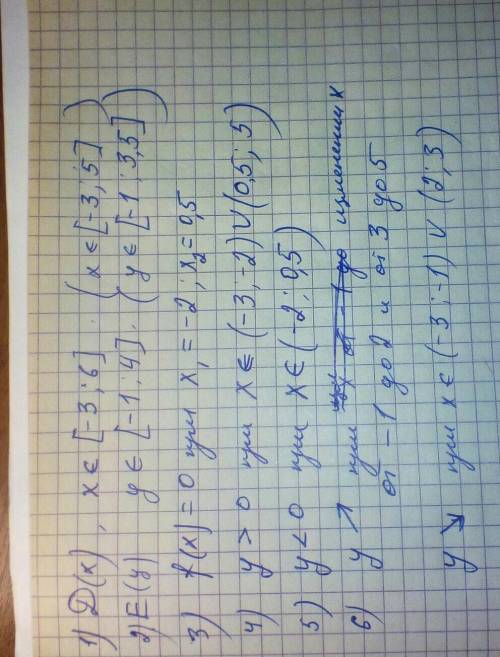 1) D(x), x ∈ [-3; 6]. (x ∈ [-3; 5])
2) E(y) y ∈ [-1; 4]. (y ∈ [-1; 3,5])
3) f(x) = 0 при x₁ = -2; x₂ = 0,5
4) y > 0 при x ∈ (-3; -2) ∪ (0,5; 5)
5) y < 0 при x ∈ (-2; 0,5)
6) y ↗ при от -1 до изменении x
от -1 до 2 и от 3 до 5
y ↘ при x ∈ (-3; -1) ∪ (2; 3)